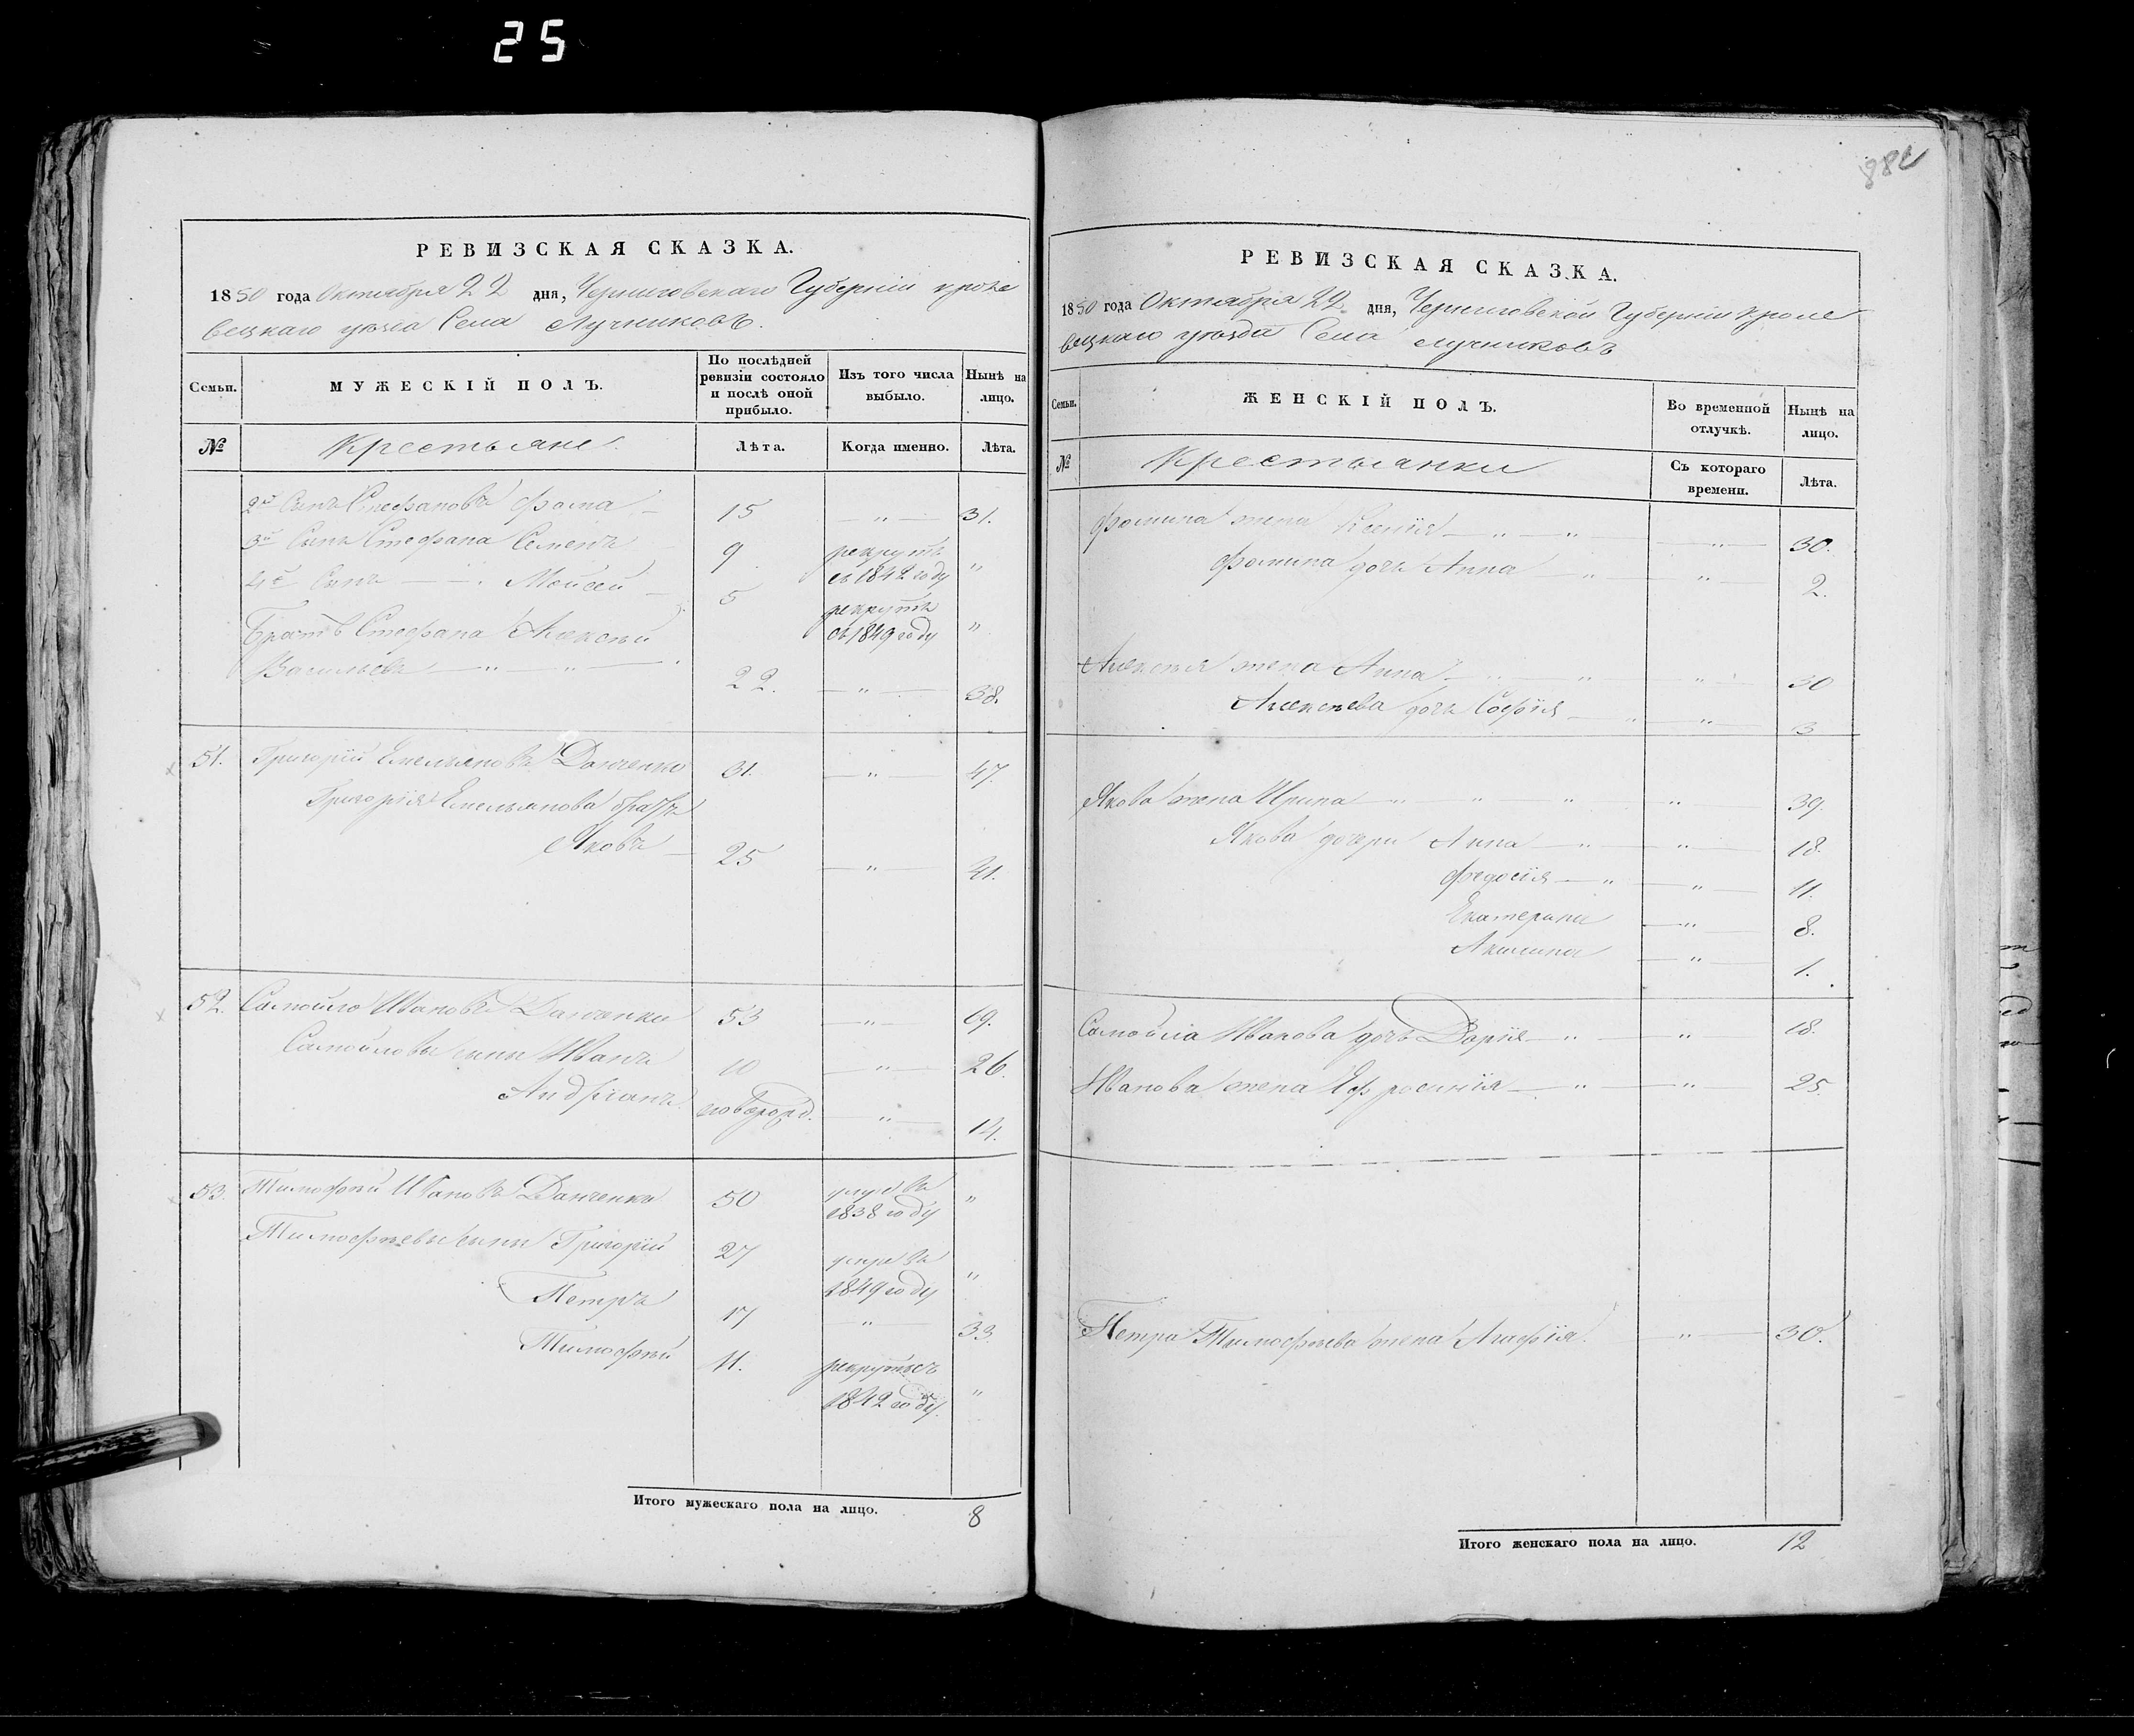 25
РЕВИЗСКАЯ СКАЗКА.
1850 года Октября 22 дня, Черниговской Губерніи Кроле
вецкаго уезда Села Лучниковъ.
Семьи. МУЖЕСКІЙ ПОЛЪ. По послѣдней ревизіи состояло и послѣ оной прибыло. Изъ того числа выбыло. Нынѣ на лицо.
№ Крестьяне. Лѣта. Когда именно. Лѣта.
2й Сынъ Стефановъ Фома — 15 — " — 31.
3й Сынъ Стефана Семенъ 9 рекрутъ съ 1842 году "
4й Сынъ — " Мойсей — 5 рекрутъ съ 1849 году "
Братъ Стефана Алексѣй
Васильевъ — " — " — 22. — " — 38.
51. Григорій Емельяновъ Данченко 31. — " — 47.
Григорія Емельянова братъ
Яковъ — 25 — " — 41.
52. Самойло Ивановъ Данченко 53 — " — 69.
Самойловы сыны Иванъ 10 — " — 26.
Андріанъ новорожд. — " — 14.
53. Тимофѣй Ивановъ Данченко 50 умре въ 1838 году "
Тимофѣевы сыны Григорій 27 умре въ 1849 году "
Петръ 17 — " — 33.
Тимофѣй 11. рекрутъ съ 1842 году. "
Итого мужескаго пола на лицо. 8
РЕВИЗСКАЯ СКАЗКА.
1850 года Октября 22 дня, Черниговской Губерніи Кроле
вецкаго уезда Села Лучниковъ
Семьи. ЖЕНСКІЙ ПОЛЪ. Во временной отлучкѣ. Нынѣ на лицо.
№ Крестьянки Съ котораго времени. Лѣта.
Фомина жена Ксенія — " — " — " — 30.
Фомина дочь Анна " — " — 2.
Алексѣя жена Анна — " — " — " — 30
Алексѣева дочь Софія — " — " — 3
Якова жена Ирина — " " " — " — 39.
Якова дочери Анна — " — " — 18.
Федосія — " — " — 11.
Екатерина — " — 8.
Акилина — " — 1.
Самойла Иванова дочь Дарія — " — " — 18.
Иванова жена Ефросинія — " — " — 25.
Петра Тимофѣева жена Агафія. — " — 30.
Итого женскаго пола на лицо. 12